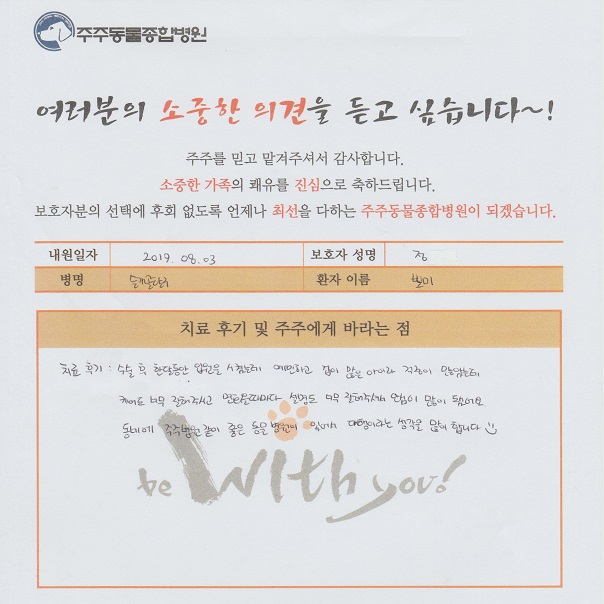 주주동물종합병원
여러분의 소중한 의견을 듣고 싶습니다~!
주주를 믿고 맡겨주셔서 감사합니다.
소중한 가족의 쾌유를 진심으로 축하드립니다.
보호자분의 선택에 후회 없도록 언제나 최선을 다하는 주주동물종합병원이 되겠습니다.
내원일자 2019. 08. 03 보호자 성명 정
병명 슬개골탈구 환자 이름 뽀미
치료 후기 및 주주에게 바라는 점
치료 후기 : 수술 후 한달동안 입원을 시켰는데 예민하고 겁이 많은 아이라 걱정이 많았는데
케어도 너무 잘해주시고 면회때마다 설명도 너무 잘해주셔서 안심이 많이 됐어요
동네에 주주병원같이 좋은 동물병원이 있어서 다행이라는 생각을 많이 합니다
be With you!